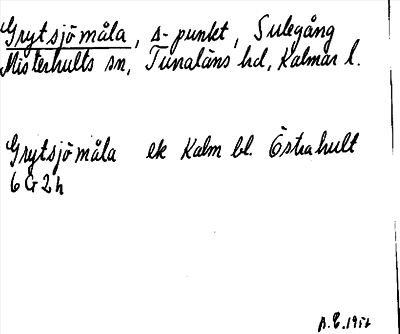 Grytsjömåla, s-punkt, Sulegång
Misterhults sn, Tunaläns hd, Kalmar l.
Grytsjömåla ek Kalm bl. Östrahult
6G2h
B.E. 1952